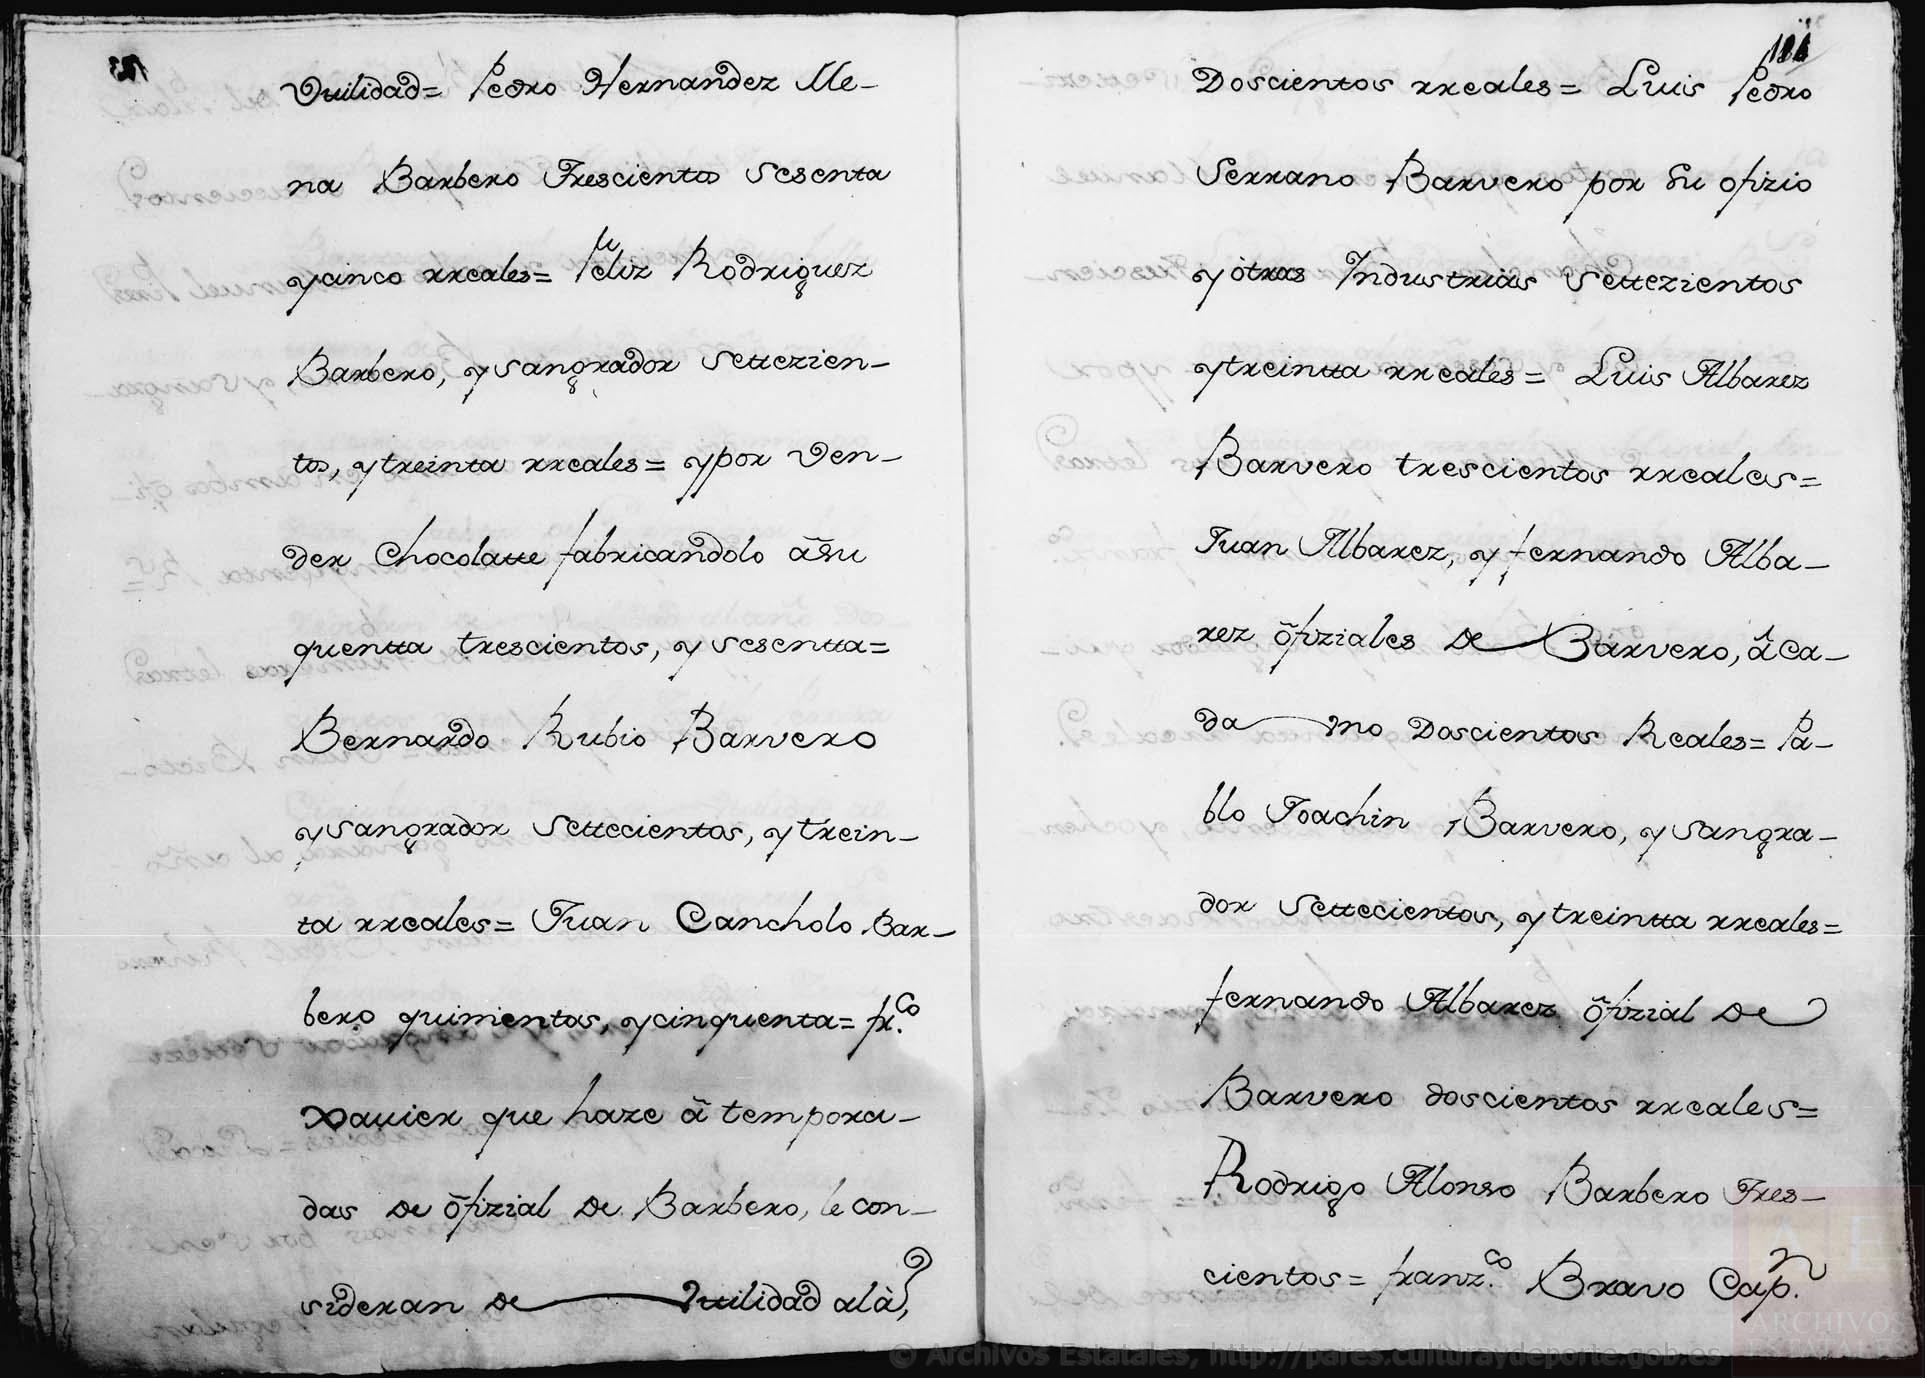 Vtilidad= Pedro Hernandez Me-
na Barbero Trescientos Sesenta
y cinco rreales= Feliz Rodriguez
Barbero, y sangrador Settezien-
tos, y treinta rreales= y por Ven-
der Chocolatte fabricandolo âsu
quentta trescientos, y sesentta=
Bernardo Rubio Barvero
y sangrador Settecientos, y trein-
ta rreales= Juan Cancholo Bar-
bero quinientos, y cinquenta= fr.co
Xavier que haze â tempora-
das de ôfizial de Barbero, le con-
sideran de Vtilidad alâ,
Doscientos rreales= Luis Pedro
Serrano Barvero por su ofizio
y ótras Industrias Settezientos
y treintta rreales= Luis Albarez
Barvero trescientos rreales=
Juan Albarez, y fernando Alba-
rez ôfiziales de Barvero, â ca-
da Vno Doscientos Reales= Pa-
blo Joachin Barvero, y sangra-
dor Settecientos, y treintta rreales=
fernando Albarez ôfizial de
Barvero doscientos rreales=
Rodrigo Alonso Barbero Tres-
cientos= franz.co Bravo Cap.n
© Archivos Estatales, http://pares.culturaydeporte.gob.es
AE
ARCHIVOS
ESTATALES